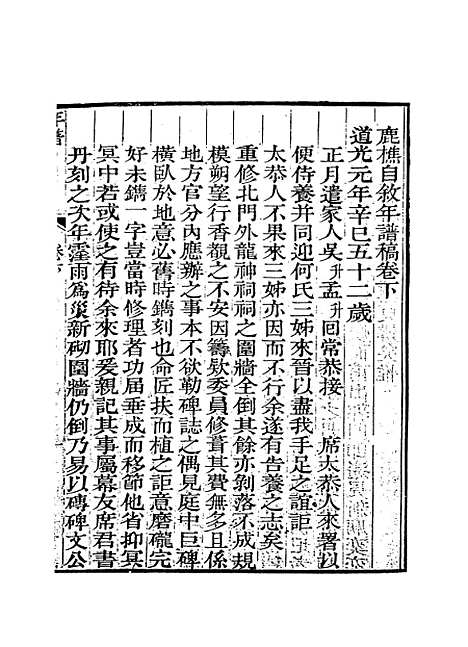 鹿樵自敘年譜稿卷下
道光元年辛巳五十二歲
正月遣家人吳升孟升回常恭接席太恭人來署以
便侍養并同迎何氏三姊來晉以盡我手足之誼詎
太恭人不果來三姊亦因而不行余遂有告養之志矣
重修北門外龍神祠祠之圍牆全倒其餘亦剝落不成規
模朔望行香觀之不安因籌欵委員修葺其費無多且係
地方官分內應辦之事本不欲勒碑誌之偶見庭中巨碑
橫臥於地意必舊時鐫刻也命匠扶而植之詎意磨礲完
好未鐫一字豈當時修理者功屆垂成而移節他省抑冥
冥中若或使之有待余來耶爰親記其事屬幕友席君書
丹刻之次年霪雨為災新砌圍牆仍倒乃易以磚碑文公
年譜
卷下